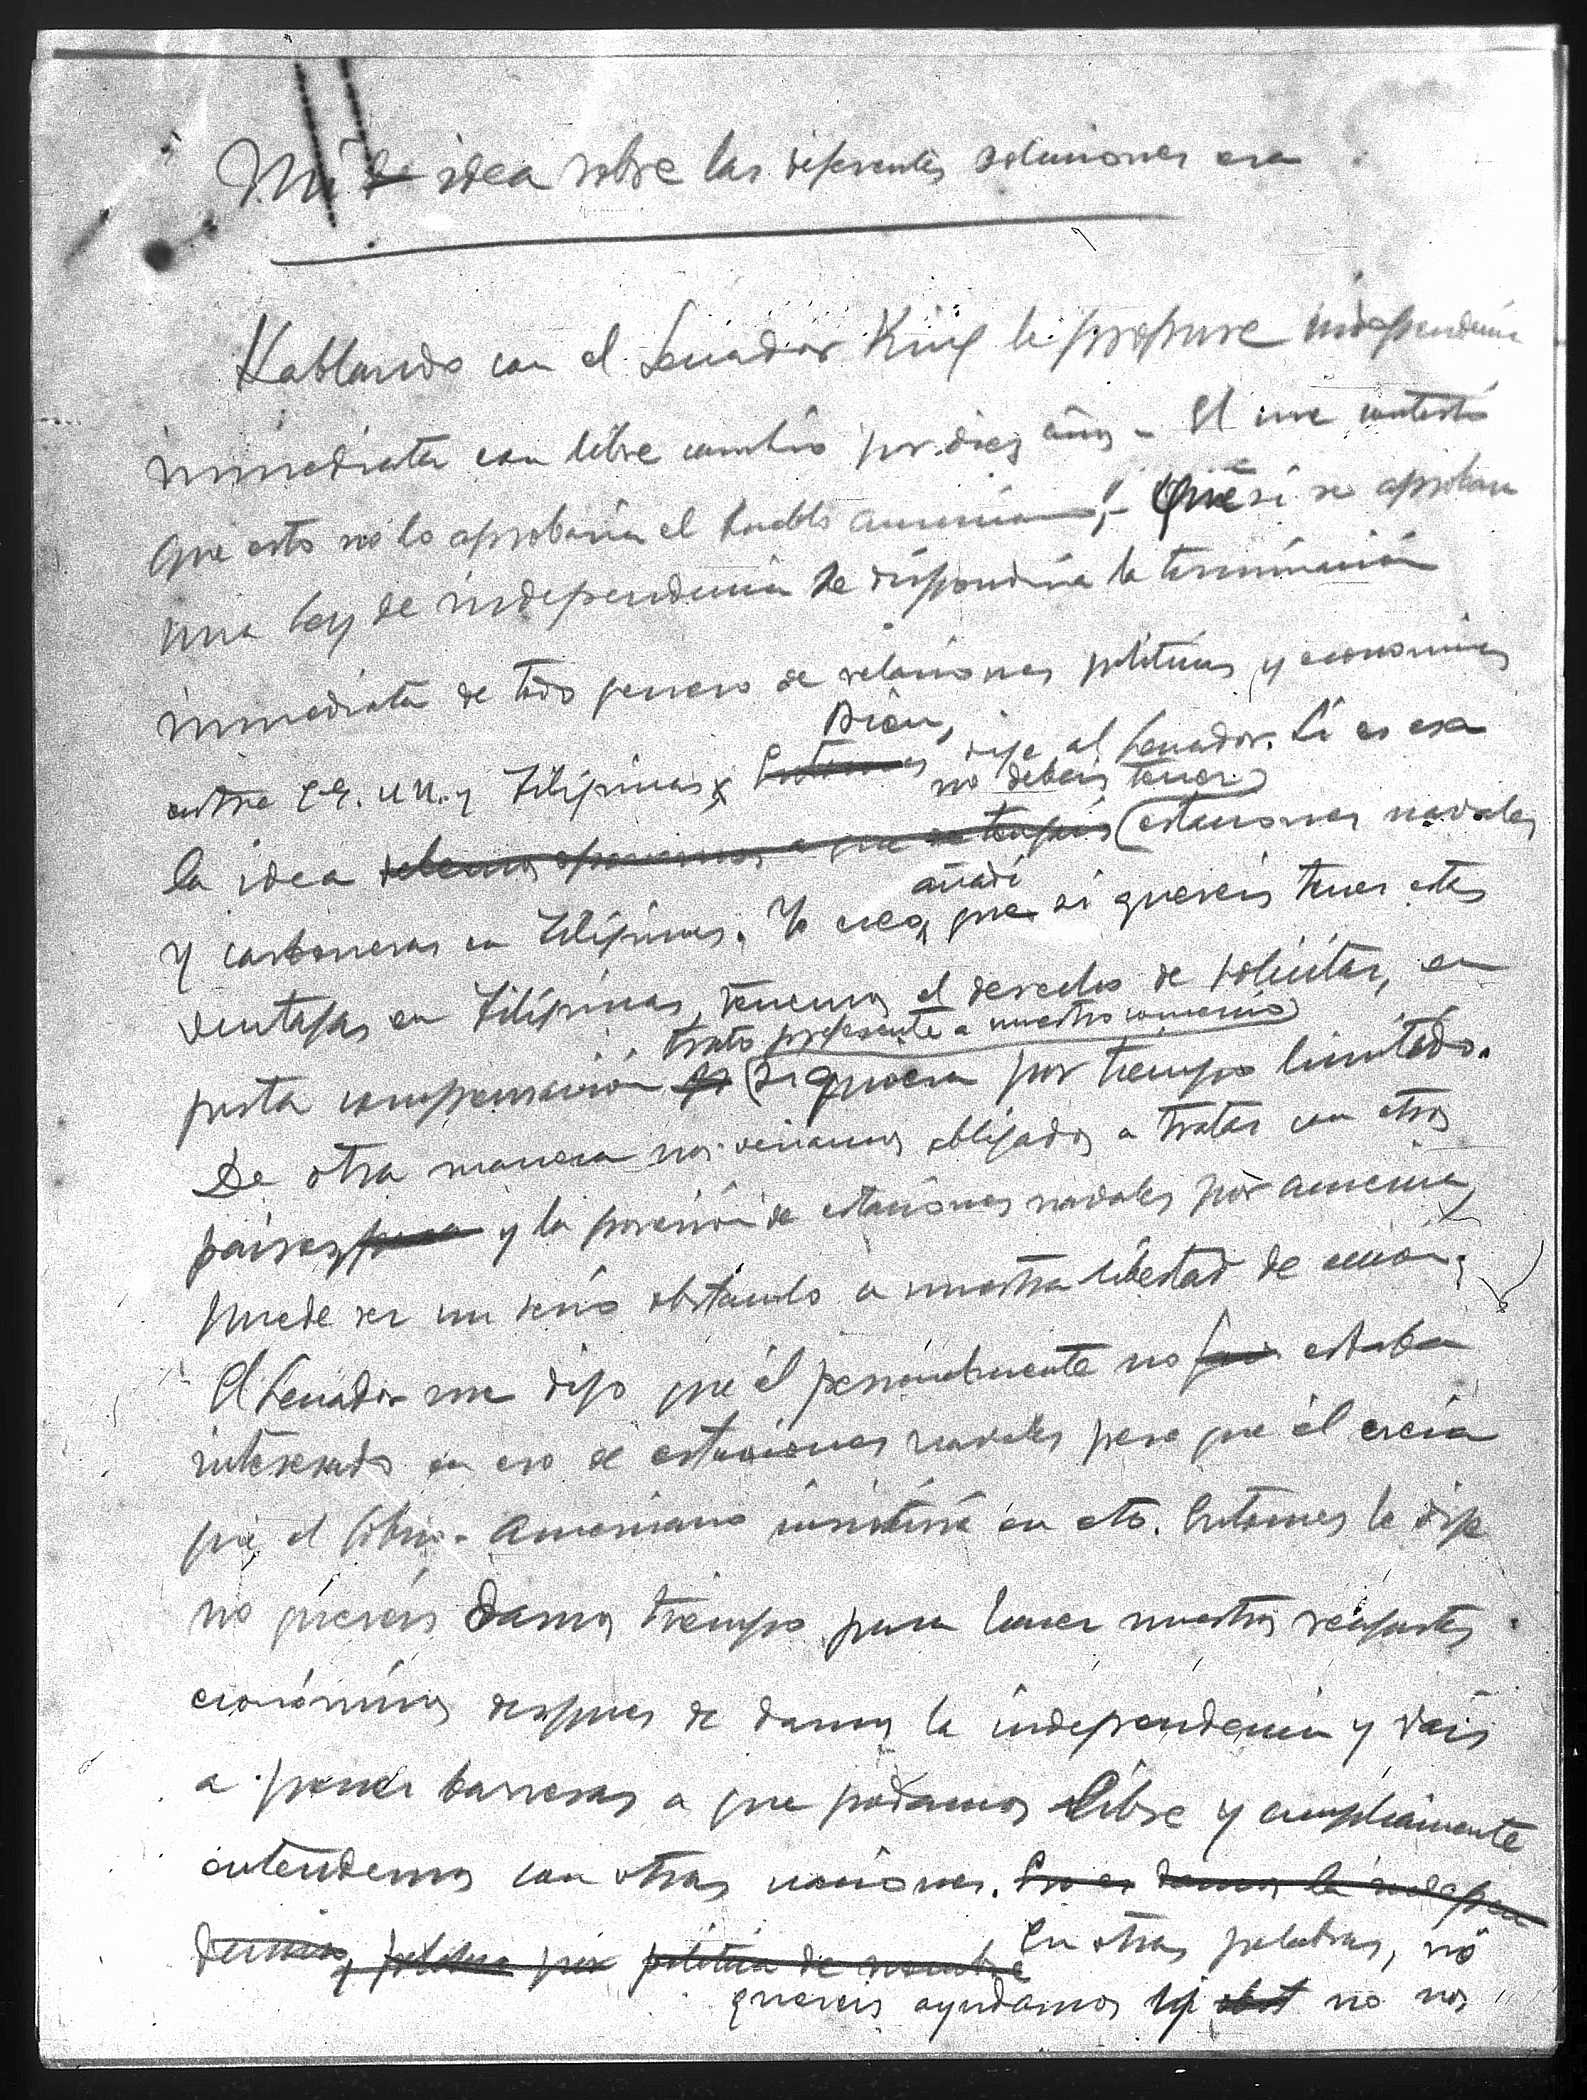 Mi la idea sobre las diferentes soluciones era
Hablando con el Senador King le propuse independencia
inmediata con libre cambio por diez años - El me contestó
que esto no lo aprobaria el Pueblo americano; - Que si se aprobara
una ley de independencia se dispondria la terminación
inmediata de todo genero de relaciones politicas y economicas
entre EE. UU. y Filipinas. Entonces Bien, dije al Senador. Si es esa
la idea debemos oponernos a que tengais no debeis tener estaciones navales
y carboneras en Filipinas. Yo creo, añadí que si quereis tener estas
ventajas en Filipinas, tenemos el derecho de solicitar, en
justa compensación trato preferente a nuestro comercio siquiera por tiempo limitado.
De otra manera nos veriamos obligados a tratar con otros
paises para y la posesión de estaciones navales por America,
puede ser un serio obstaculo a nuestra libertad de acción.
El Senador me dijo que él personalmente no estaba
interesado en eso de estaciones navales pero que él creia
que el Gobno. Americano insistirá en eto. Entonces le dije
no quereis darnos tiempo para hacer nuestros reajustes
económicos despues de darnos la independencia y vais
a poner barreras a que podamos libre y ampliamente
entendernos con otras naciones. Eso es darnos la indepen
dencia, politica de nombre En otras palabras, no
quereis ayudarnos ni no nos